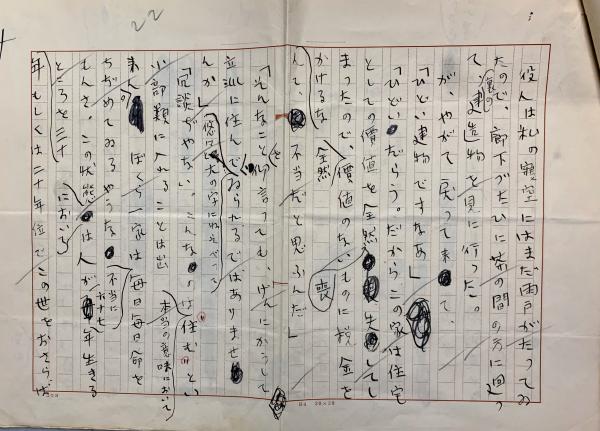 22
役人は私の寝室にはまだ雨戸がたってゐ
たので、廊下づたひに茶の間の方に廻っ
て、家の建造物を見に行った。
が、やがて戻って来て、
「ひどい建物ですなあ」
「ひどいだらう。だからこの家は住宅
としての價値を全然喪失してし
まったので、價値のないものに税金を
かけるな
んて、全然不当だと思ふんだ」
「そんなことを仰言っても、げんにかうして
立派に住んでゐられるではありませ
んか」
「冗談ぢやない。こんなのは住むとい
ふ部類に入れることは出
来ん。ぼくら一家は毎日毎日命を
ちぢめてゐるやうな
もんさ。この状態においては人が年生きる
ところを三十
年もしくは二十年位でこの世をおさらば
本当の意味において
不当に
B4 20×20